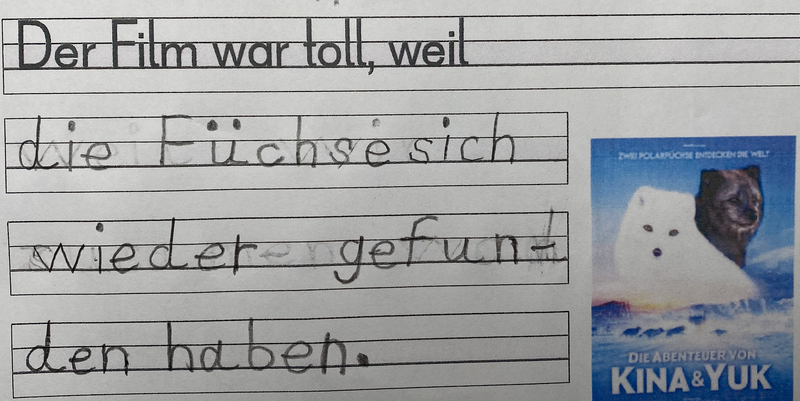 Der Film war toll, weil
die Füchse sich
wieder gefun-
den haben.
ZWEI POLARFÜCHSE ENTDECKEN DIE WELT
DIE ABENTEUER VON
KINA & YUK